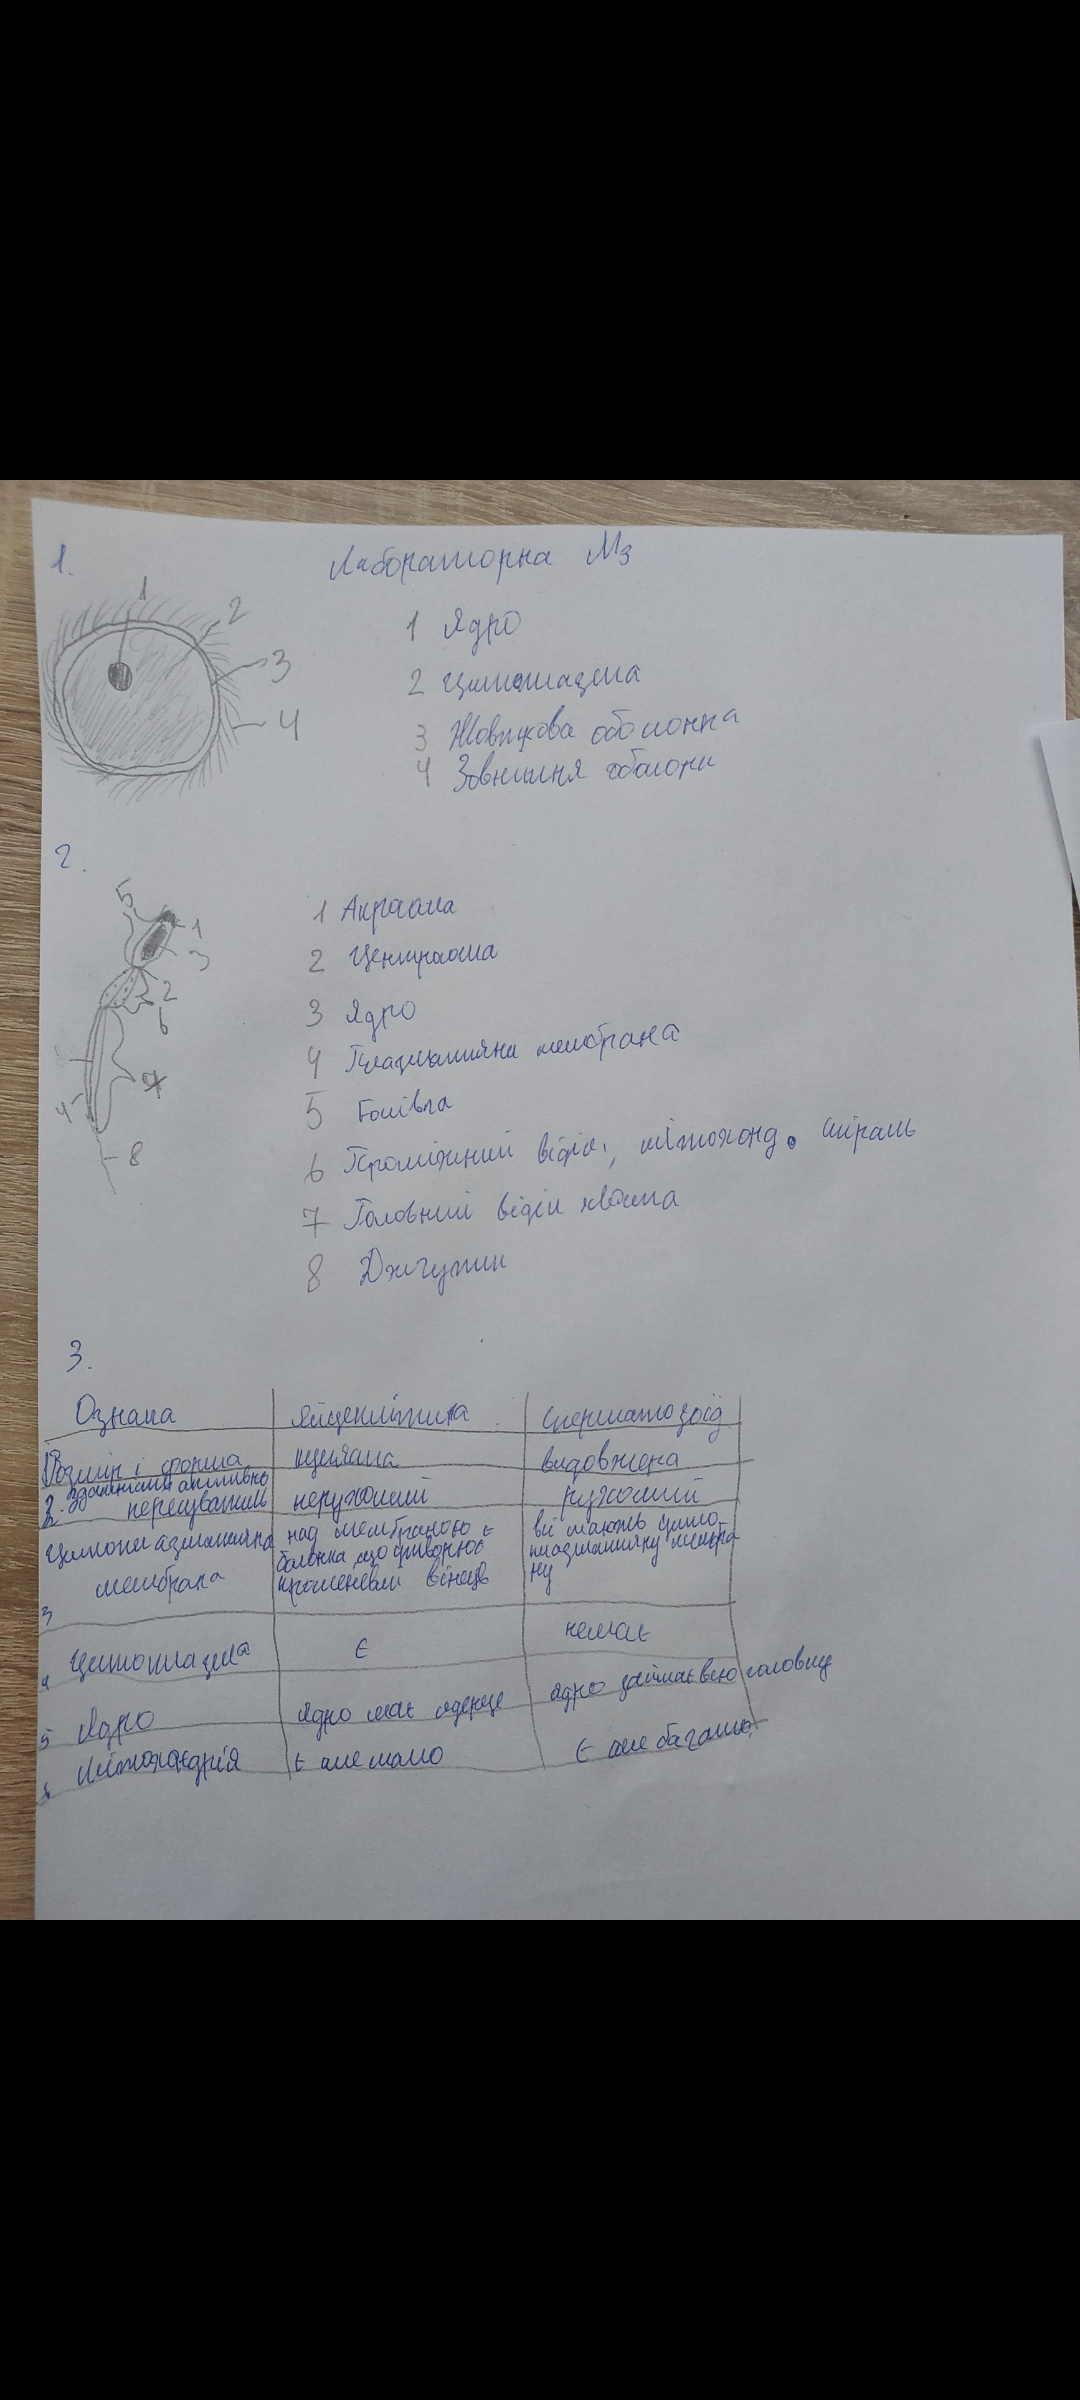 1.
Лабораторна №3
1
2
3
4
1 Ядро
2 Цитоплазма
3 Жовткова оболонка
4 Зовнішня оболонк
2.
5
1
3
2
6
7
4
8
1 Акросома
2 Центросома
3 Ядро
4 Плазматична мембрана
5 Голівка
6 Проміжний відділ, мітохонд. спіраль
7 Головний відділ хвоста
8 Джгутик
3.
Ознака яйцеклітина сперматозоїд
1 Розмір і форма куляста видовжена
2. Здатність активно пересуватись нерухомий рухомий
3 Цитоплазматична мембрана
над мембраною є
болонка що утворює
променевий вінець
всі мають цито-
плазматичну мембра-
ну
4 Цитоплазма є немає
5 Ядро Ядро має ядерце ядро займає всю головку
6 Мітохондрія є але мало є але багато.